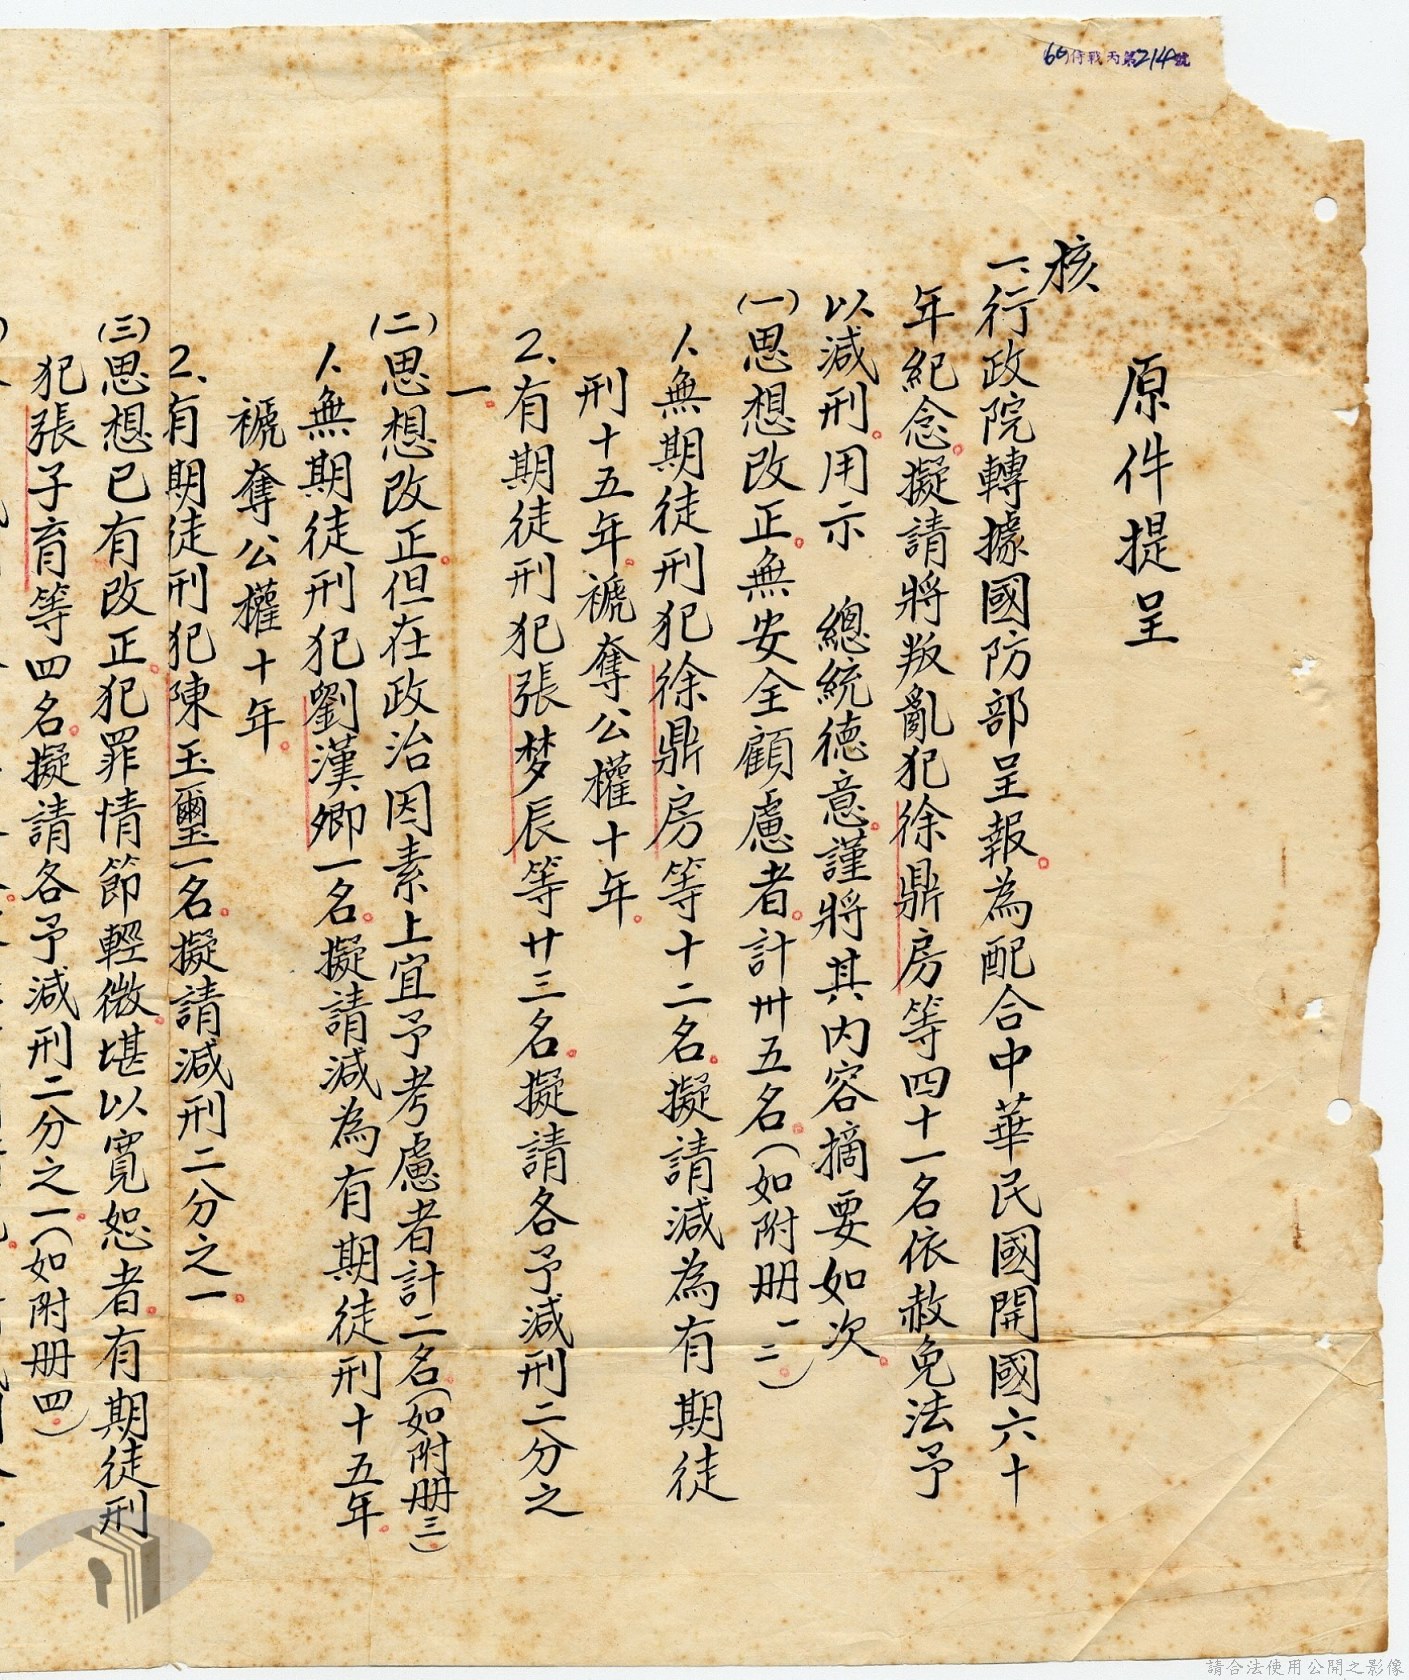 60侍戰丙第214號
原件提呈
核
一、行政院轉據國防部呈報。為配合中華民國開國六十
年紀念。擬請將叛亂犯徐鼎房等四十一名依赦免法予
以減刑。用示　總統德意。謹將其內容摘要如次。
(一)思想改正。無安全顧慮者。計卅五名。(如附册一二。)
1.無期徒刑犯徐鼎房等十二名。擬請減為有期徒
刑十五年。褫奪公權十年。
2.有期徒刑犯張梦辰等廿三名。擬請各予減刑二分之
一。
(二)思想改正。但在政治因素上宜予考慮者計二名。(如附册三。)
1.無期徒刑犯劉漢卿一名。擬請減為有期徒刑十五年。
褫奪公權十年。
2.有期徒刑犯陳玉璽一名。擬請減刑二分之一。
(三)思想已有改正。犯罪情節輕微。堪以寬恕者。有期徒刑
犯張子育等四名。擬請各予減刑二分之一。(如附册四。)
請合法使用公開之影像